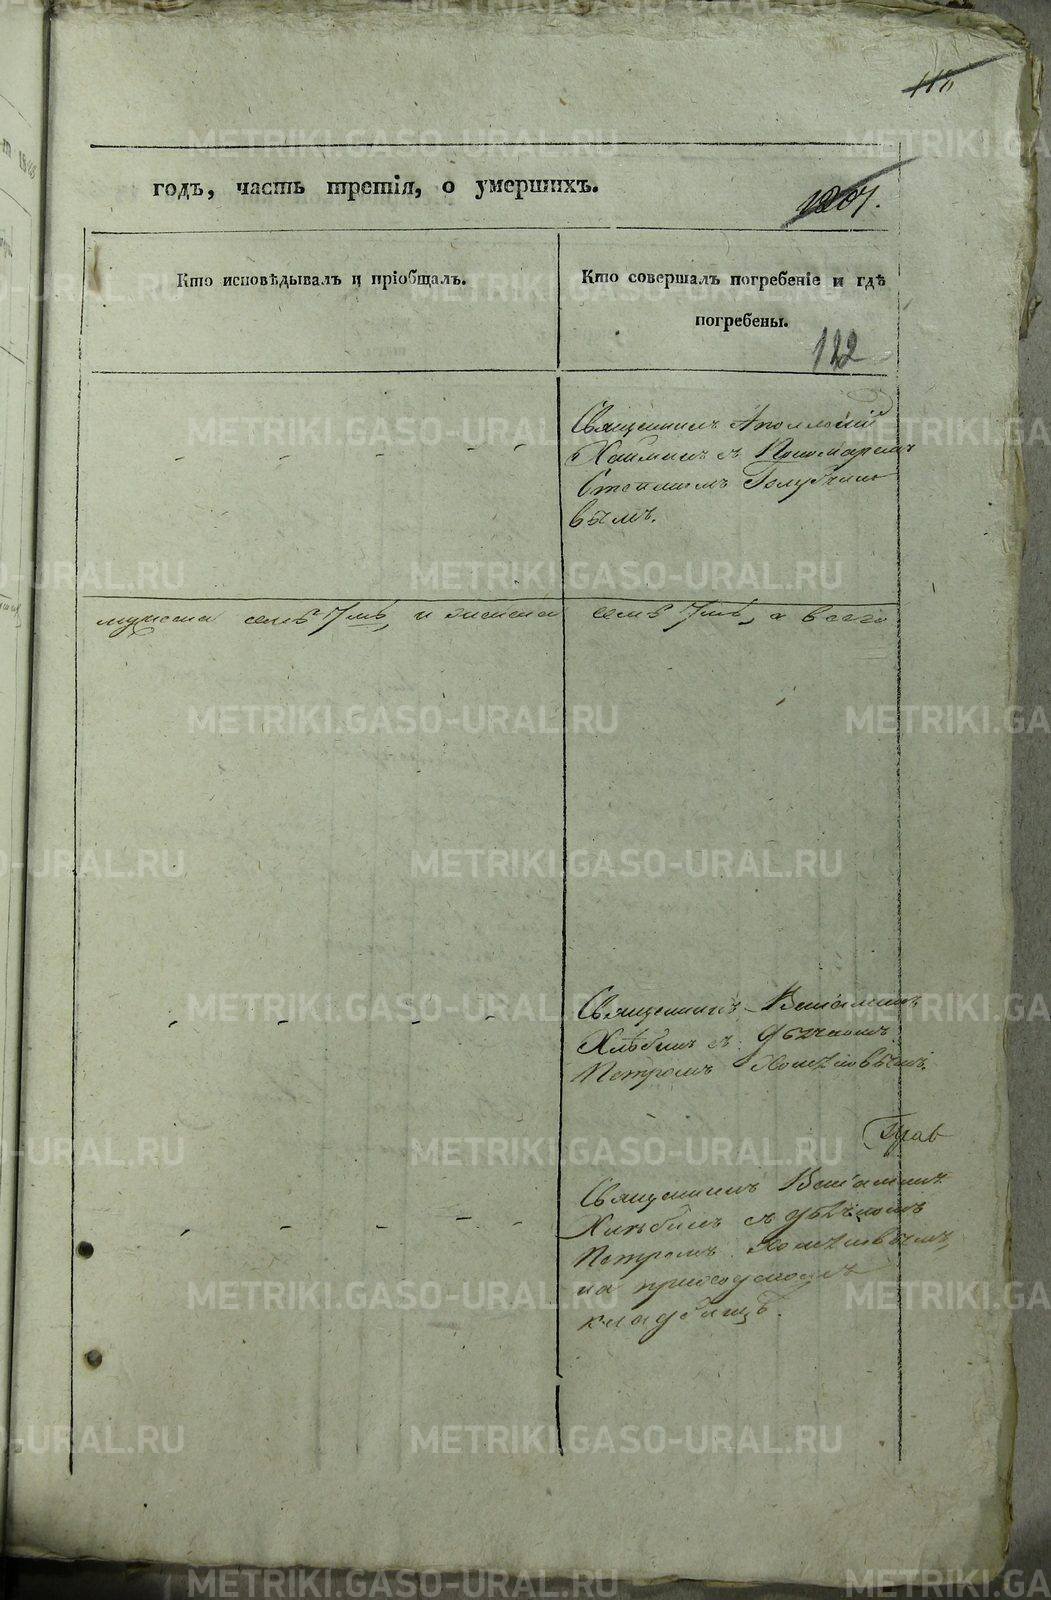 годъ, часть третія, о умершихъ.
1207.
Кто исповѣдывалъ и пріобщалъ.
Кто совершалъ погребеніе и гдѣ
погребены.
122
Священникъ Аполлоній
съ Пономаремъ
Стефаномъ Голубчико
вымъ.
мужеска семь 7мь, и женска семь 7мь, а всего
Священникъ Веніаминъ
Хлѣбинъ съ Дьячкомъ
Петромъ
Граф
Священникъ Веніаминъ
Хлѣбинъ съ Дьячкомъ
Петромъ
на приходскомъ
кладбищѣ.
METRIKI.GASO-URAL.RU